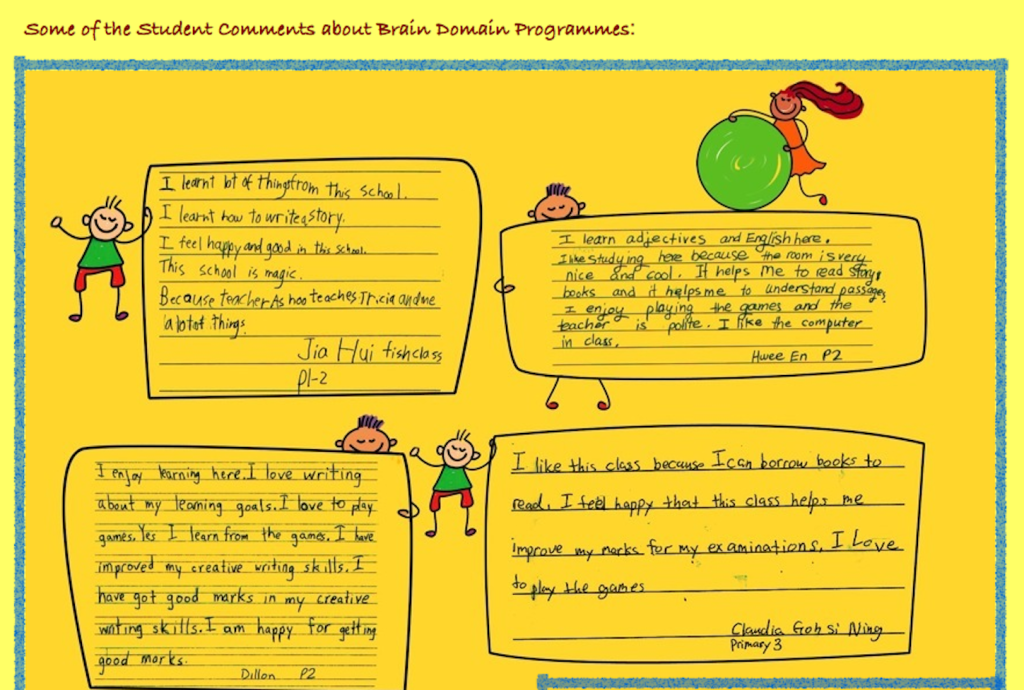 Some of the Student Comments about Brain Domain Programmes:
I learnt lot of thingsfrom this school.
I learnt how to write a story.
I feel happy and good in this school.
This school is magic.
Because teacher As hoo teaches Tricia and me
a lot of things
Jia Hui fish class
P1-2
I learn adjectives and English here.
I like studying here because the room is very
nice and cool. It helps me to read story
books and it helps me to understand passages
I enjoy playing the games and the
teacher is polite. I like the computer
in class.
Hwee En P2
I enjoy learning here. I love writing
about my learning goals. I love to play
games. Yes I learn from the games. I have
improved my creative writing skills. I
have got good marks in my creative
writing skills. I am happy for getting
good marks.
Dillon P2
I like this class because I can borrow books to
read. I feel happy that this class helps me
improve my marks for my examinations. I Love
to play the games
Claudia Goh si Ning
Primary 3